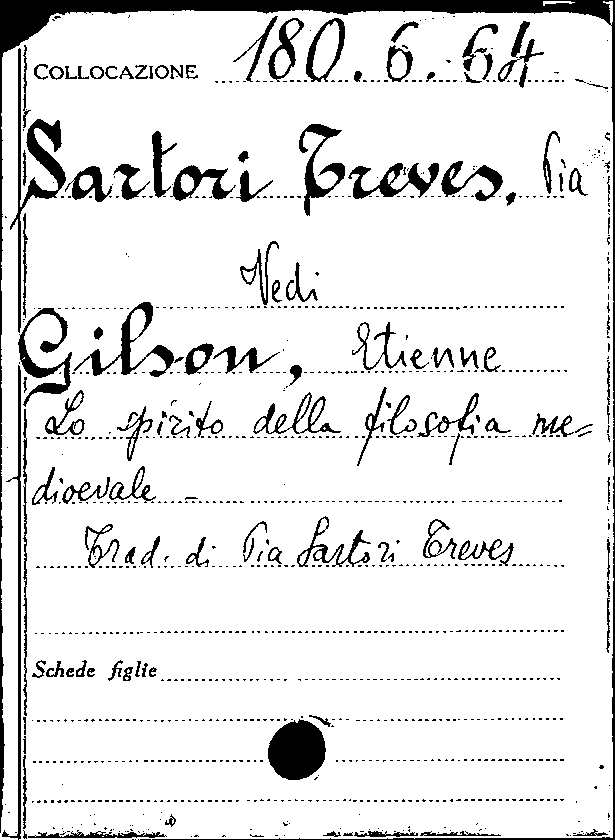 COLLOCAZIONE 180.6.64
Sartori Treves, Pia
Vedi
Gilson, Etienne
Lo spirito della filosofia me=
dioevale -
Trad. di Pia Sartori Treves
Schede figlie